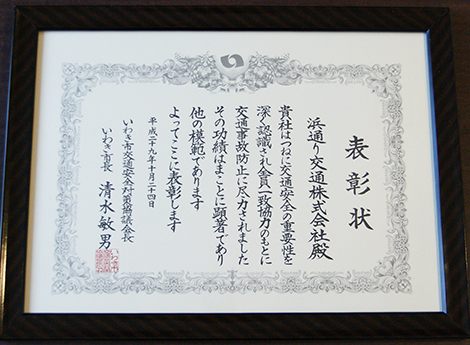 表彰状
浜通り交通株式会社殿
貴社はつねに交通安全の重要性を
深く認識され全員一致協力のもとに
交通事故防止に尽力されました
その功績はまことに顕著であり
他の模範であります
よってここに表彰します
平成二十九年十月二十四日
いわき市交通安全対策協議会長
いわき市長 清水敏男